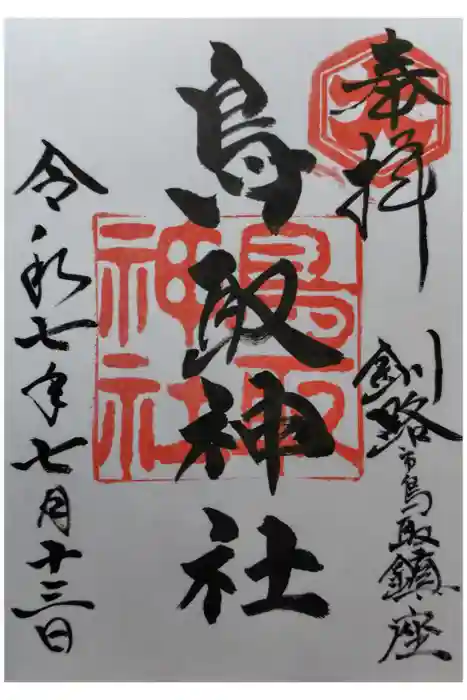 奉拝
釧路市鳥取鎮座
鳥取神社
鳥取神社
令和七年七月十三日